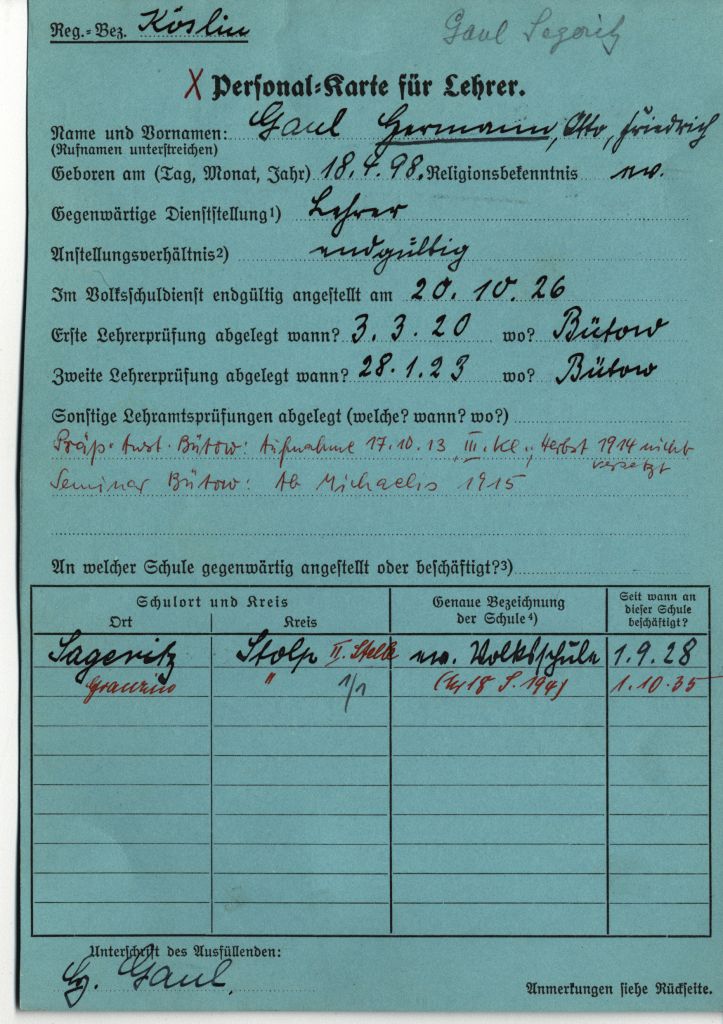 Reg.-Bez. Köslin
Gaul Sageritz
X Personal-Karte für Lehrer.
Name und Vornamen: Gaul Hermann, Otto, Friedrich
(Rufnamen unterstreichen)
Geboren am (Tag, Monat, Jahr) 18.4.98. Religionsbekenntnis ev.
Gegenwärtige Dienststellung¹) Lehrer
Anstellungsverhältnis²) endgültig
Im Volksschuldienst endgültig angestellt am 20.10.26
Erste Lehrerprüfung abgelegt wann? 3.3.20 wo? Bütow
Zweite Lehrerprüfung abgelegt wann? 28.1.23 wo? Bütow
Sonstige Lehramtsprüfungen abgelegt (welche? wann? wo?)
Präp. Anst. Bütow: Aufnahme 17.10.13, III. Kl., Herbst 1914 nicht
versetzt
Seminar Bütow: Ab Michaelis 1915
An welcher Schule gegenwärtig angestellt oder beschäftigt?³)
Schulort und Kreis
Ort Kreis
Genaue Bezeichnung der Schule⁴)
Seit wann an dieser Schule beschäftigt?
Sageritz Stolp II. Stelle ev. Volksschule 1.9.28
Granzin " 1/1 1.10.35
Unterschrift des Ausfüllenden:
Gaul.
Anmerkungen siehe Rückseite.